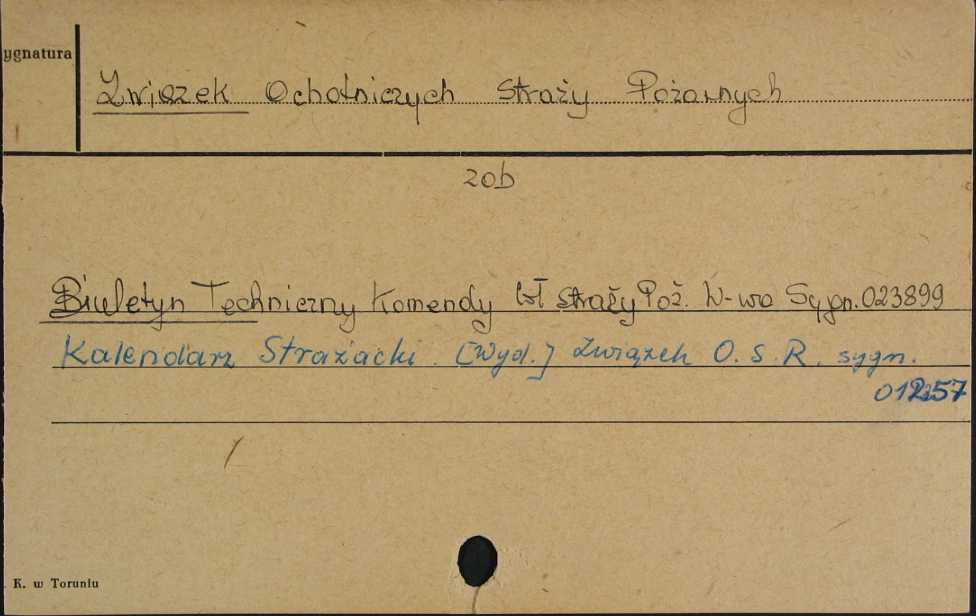 ygnatura
Związek Ochotniczych Straży Pożarnych
zob
Biuletyn Techniczny Komendy Gł Straży Poż. W-wa Sygn. 023899
Kalendarz Strażacki. [Wyd.] Związek O. S. R. sygn.
K. w Toruniu